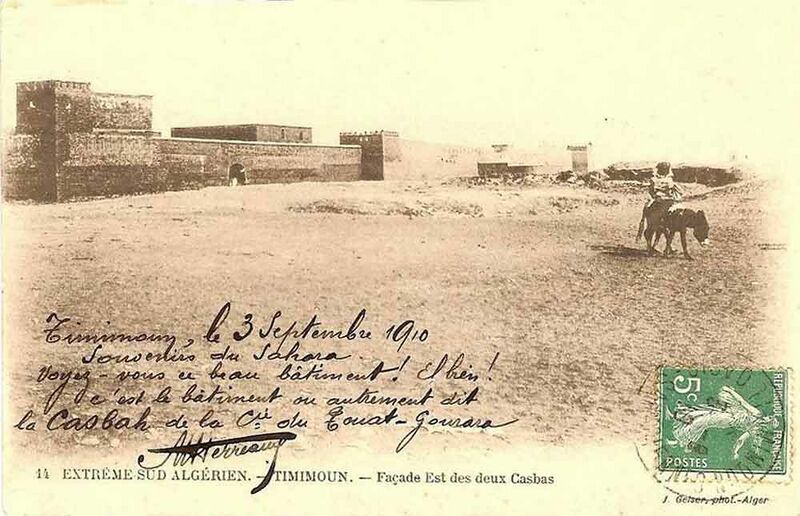 Timimoun, le 3 Septembre 1910
Souvenirs du Sahara.
Voyez-vous ce beau bâtiment! Eh bien!
c'est le bâtiment ou autrement dit
la Casbah de la Cie du Touat-Gourara
14 EXTRÊME SUD ALGÉRIEN. - TIMIMOUN. - Façade Est des deux Casbas
5c
POSTES
RÉPUBLIQUE
FRANÇAISE
J. Geiser, phot.-Alger